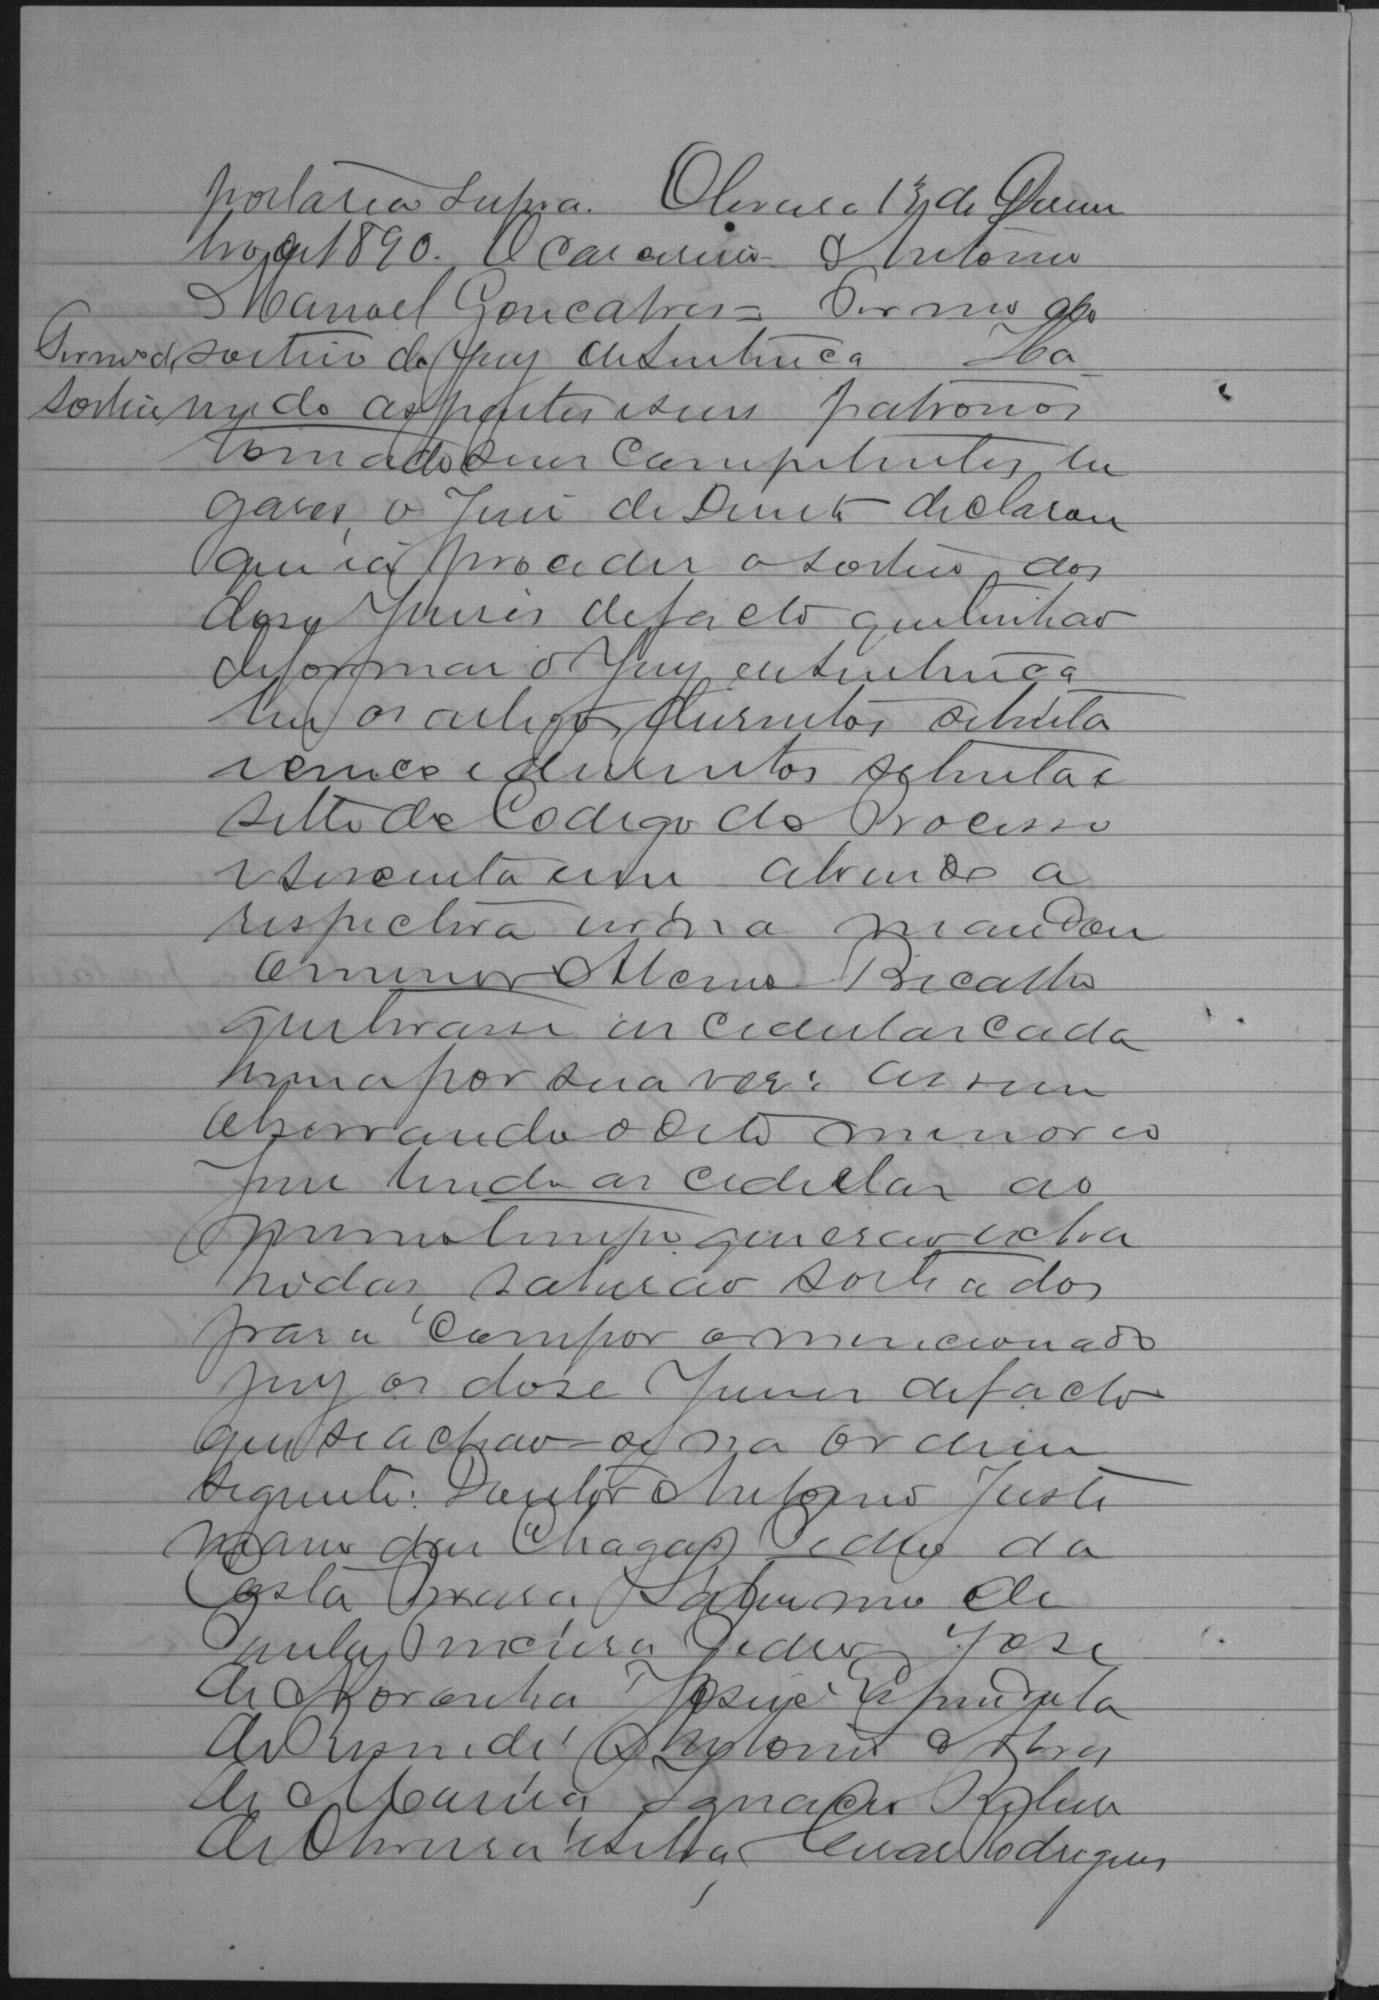 portaria supra. Oliveira 13 de Dezem
bro de 1890. O escrivão Antonio
Manoel Goncalves = Termo do
Termo de sorteio do jury de sentença Ha
sorteio vendo as partes e seus patronos
tomado seus competentes lu
gares, o Juiz de Direito declarou
que ia proceder o sorteio dos
doze Juizes de facto que tinhão
de formar o Jury de sentença
leu os artigos duzentos setenta
e cinco e duzentos setenta e
sette do Codigo do Processo
abrindo a
respectiva urna mandou
o menor Ricallo
que tirasse as cedulas cada
huma por sua vez: assim
observando o dito menor e o
Juiz lendo as cedulas ao
mesmo tempo que erão extra
hidas, sahirão sorteados
para compor o mencionado
jury os doze Juizes de facto
que se achão na ordem
seguinte: Doutor Antonio Justi
niano das Chagas, Pedro da
Costa Saturnino de
Paula Pedro José
de Noronha, Josué
de Resende, Antonio Alves
de Ignacio Ribeiro
de Oliveira e Silva, Cesar Rodrigues